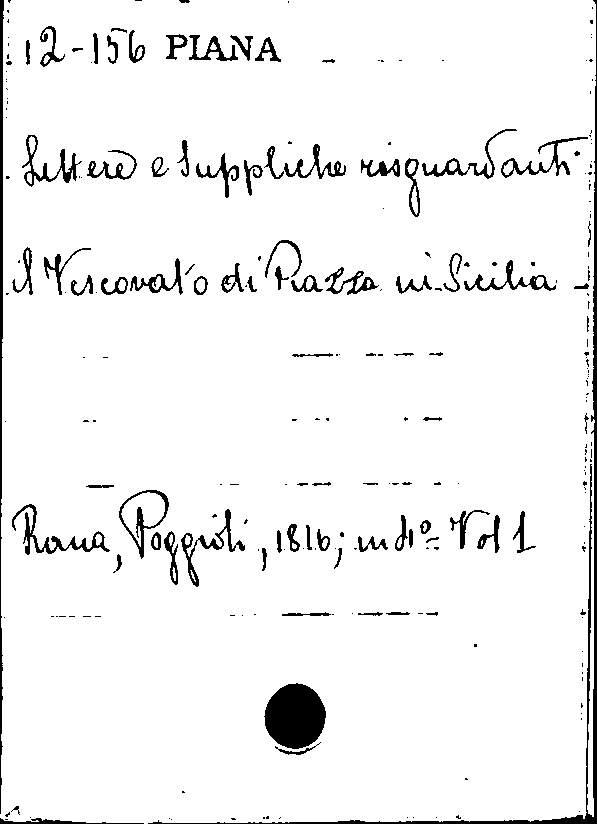 12-156 PIANA
Lettere e Suppliche risguardanti
il Vescovato di Piazza in Sicilia -
Roma, Poggioli, 1816; in 4º= Vol 1